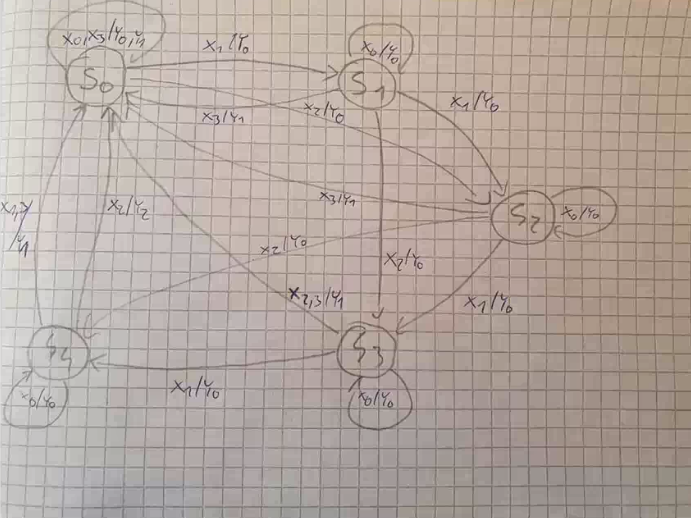 x0,x3/Y0,Y1
S0
x1/Y0
x0/Y0
S1
x3/Y1
x2/Y0
x1/Y0
x2/Y2
x3/Y1
S2
x0/Y0
x2/Y0
x2/Y0
x2,3/Y1
x1/Y0
S4
S3
x1/Y0
x0/Y0
x0/Y0